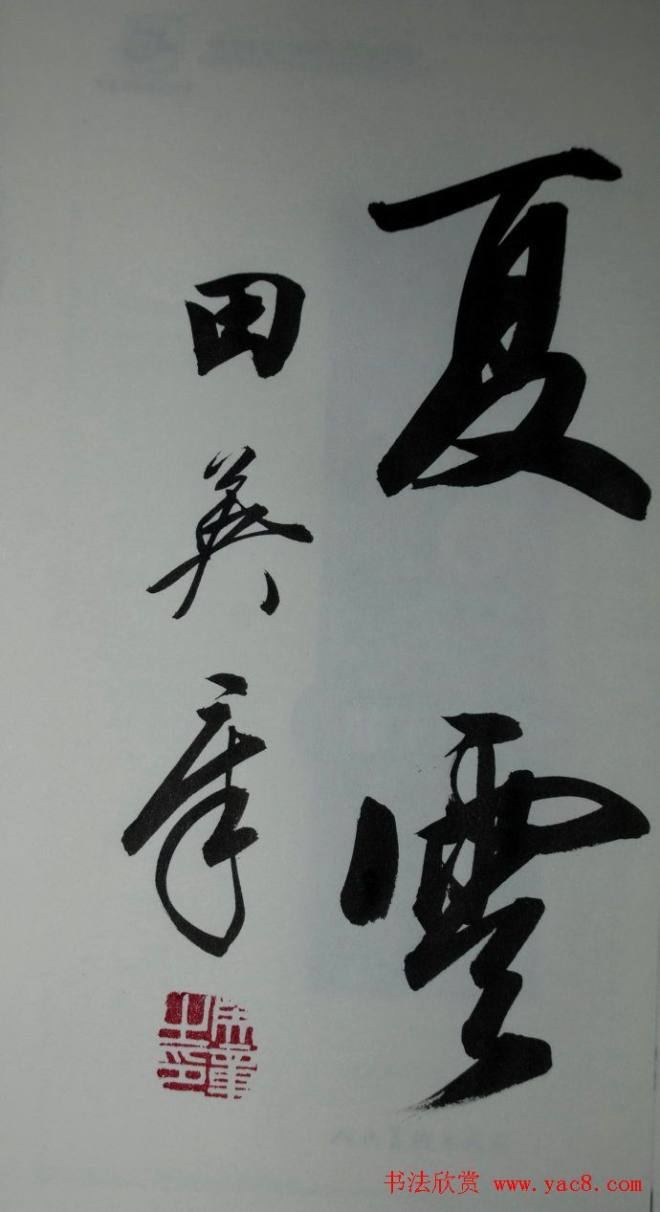 夏雲
田英章
书法欣赏 www.yac8.com